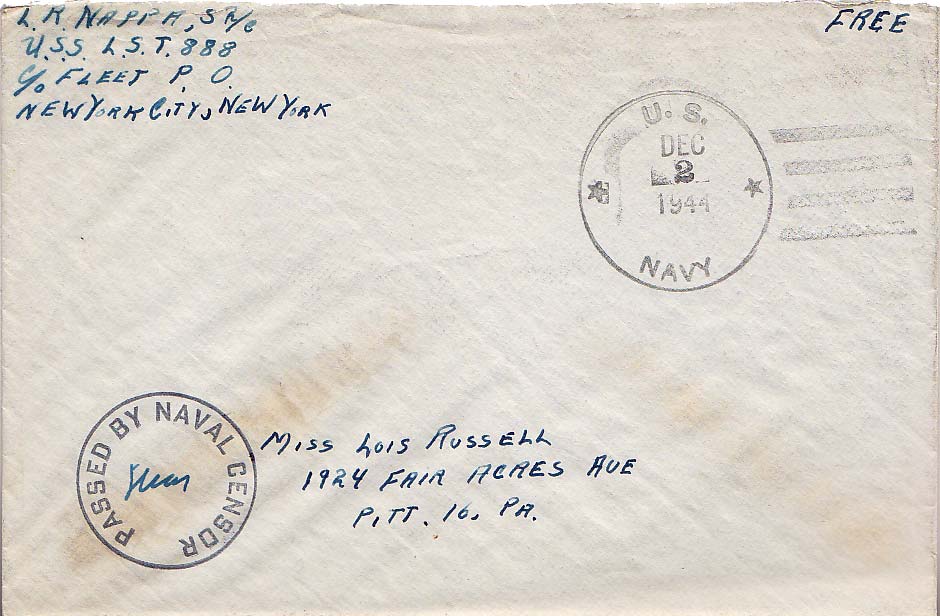 L. R. NAPPA, S 2/c
U.S.S. L.S.T. 888
C/o FLEET P. O.
NEW YORK CITY, NEW YORK
FREE
U. S.
DEC
2
1944
NAVY
PASSED BY NAVAL CENSOR
MISS LOIS RUSSELL
1924 FAIR ACRES AVE
PITT. 16, PA.